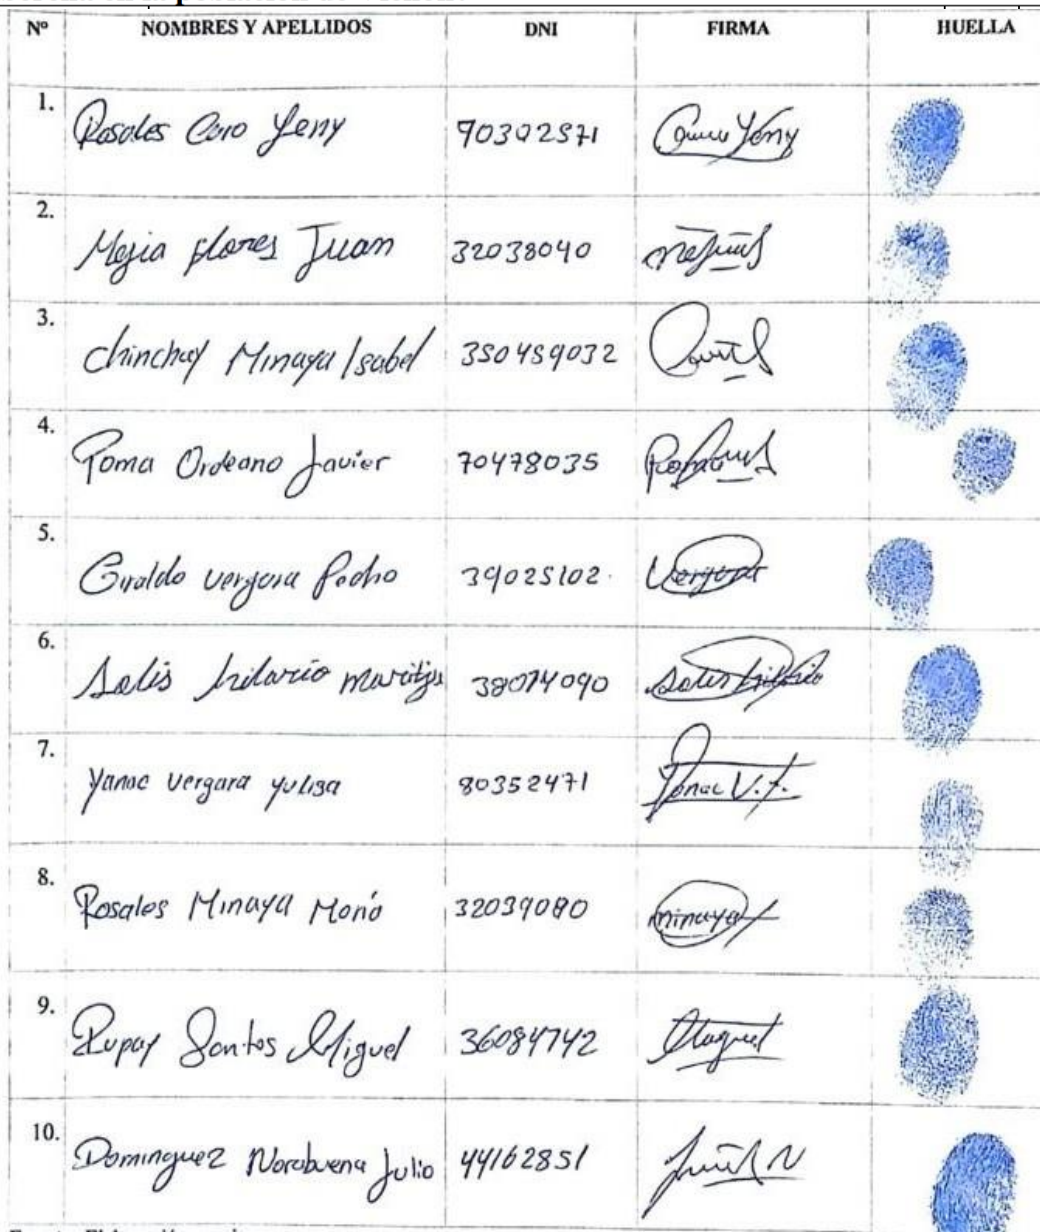 Nº NOMBRES Y APELLIDOS DNI FIRMA HUELLA
1. Rosales Caro Yeny 70302571
2. Mejia flores Juan 32038040 Mejia
3. Chinchay Minaya Isabel 350459032
4. Poma Ordeano Javier 70478035 Poma
5. Giraldo vergara Pedro 39025102. Vergara
6. Solis hilario maritza 38074090 Solis hilario
7. Yanac Vergara yulisa 80352471 Yanac V.Y.
8. Rosales Minaya Maria 32039080 minaya
9. Rupay Santos Miguel 36084742
10. Dominguez Norabuena Julio 44162851